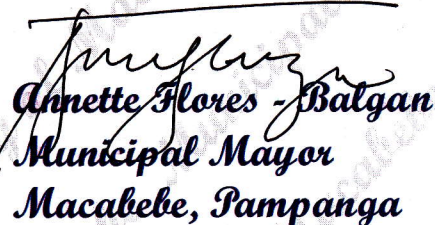 Annette Flores - Balgan
Municipal Mayor
Macabebe, Pampanga